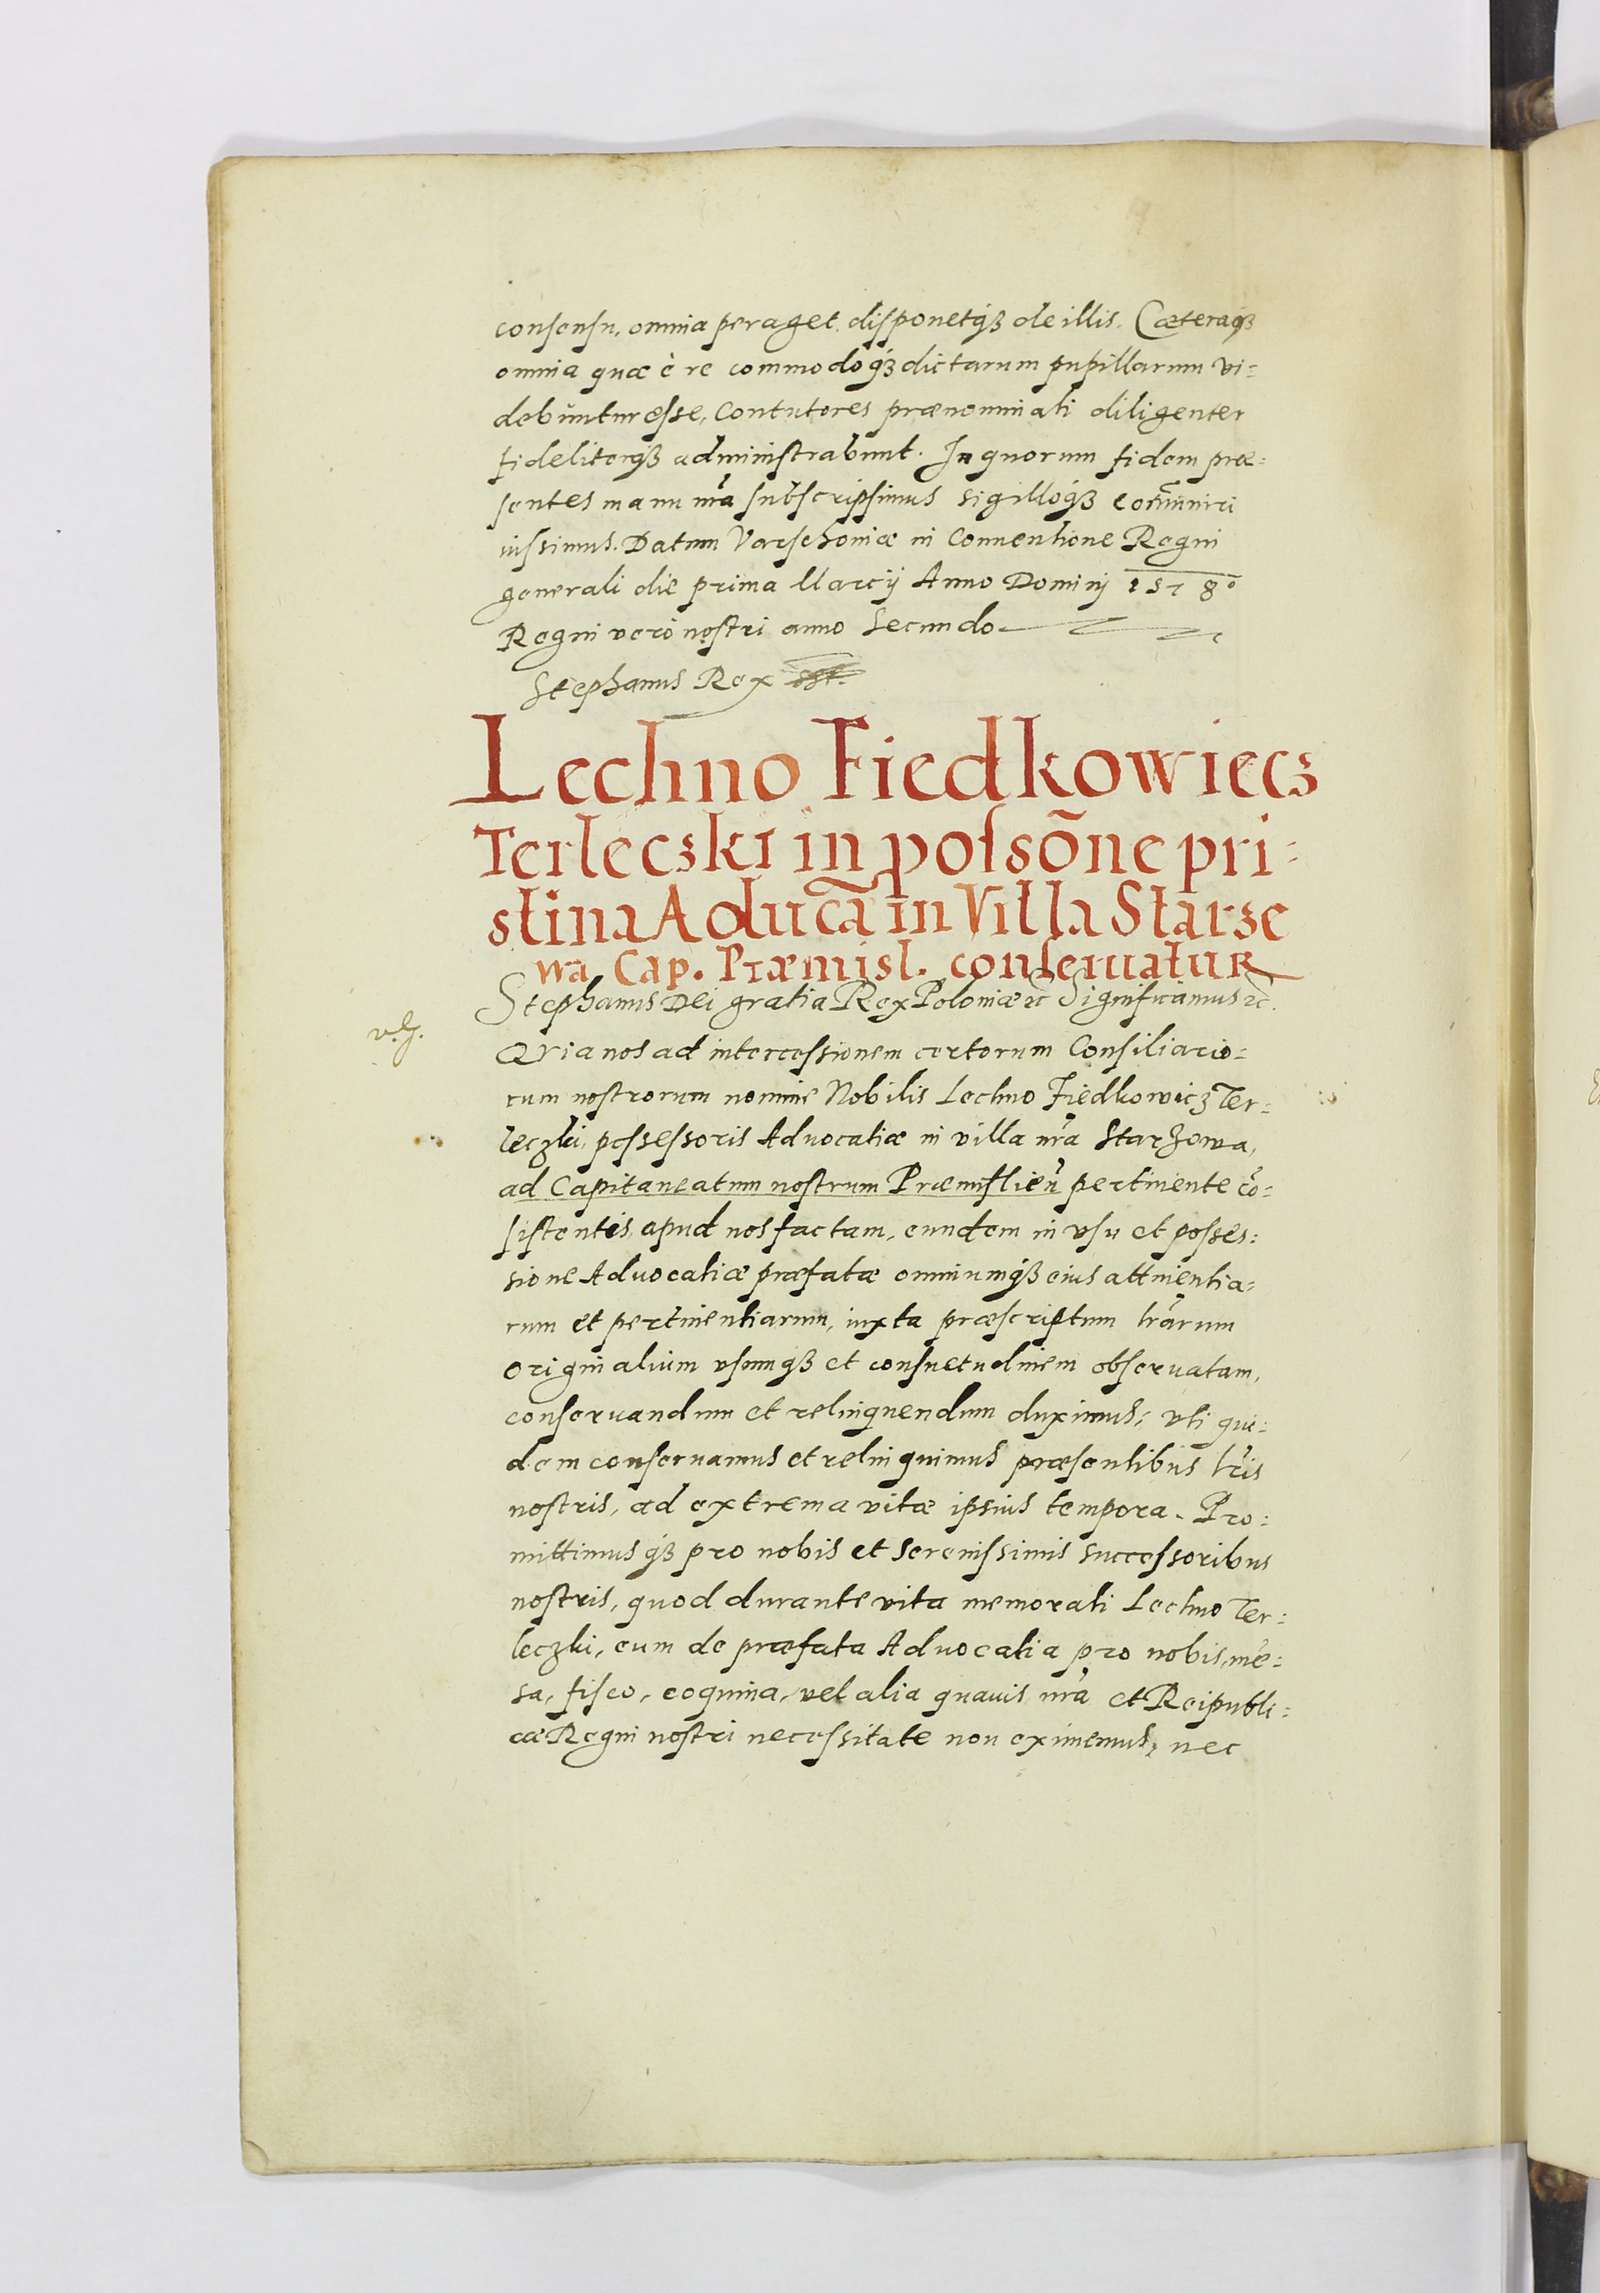 consensu, omnia peraget, disponetqȝ de illis. Cæteraqȝ
omnia quæ è re commodoqȝ dictarum pupillarum vi=
debuntur esse, Contutores prænominati diligenter
fideliterqȝ administrabunt. In quorum fidem præ=
sentes manu nr̃a subscripsimus sigilloqȝ com̃uniri
iussimus. Datum Varschoviæ in Conventione Regni
generali die prima Marcÿ Anno Dominÿ 1578º
Regni verò nostri anno Secundo
Stephanus Rex
Lechno Fiedkowiecz
Terleczki in possõne pri=
stina Aduca͂ in Villa Starze
wa Cap. Præmisl. conseruatur
Stephanus Dei gratia Rex Poloniæ ꝛc̃ Significamus ꝛc̃.
Qvia nos ad intercessionem certorum Consiliario=
rum nostrorum nomine Nobilis Lechno Fiedkowicz Ter=
leczki, possessoris Aduocatiæ in villa nr̃a Starzowa,
ad Capitaneatum nostrum Præmislień pertinente cõ=
sistentis, apud nos factam, eundem in vsu et posses=
sione Aduocatiæ præfatæ omniumqȝ eius attinentia=
rum et pertinentiarum, iuxta præscriptum lr̃arum
originalium vsumqȝ et consuetudinem obseruatam,
conseruandum et relinquendum duximus, vti qui=
dem conseruamus et relinquimus præsentibus lr̃is
nostris, ad extrema vitæ ipsius tempora. Pro=
mittimusqȝ pro nobis et Serenissimis Successoribus
nostris, quod durante vita memorati Lechno Ter=
leczki, eum de præfata Aduocatia pro nobis, mẽ=
sa, fisco, coquina, vel alia quauis nr̃a et Reipubli=
cæ Regni nostri necessitate non eximemus, nec